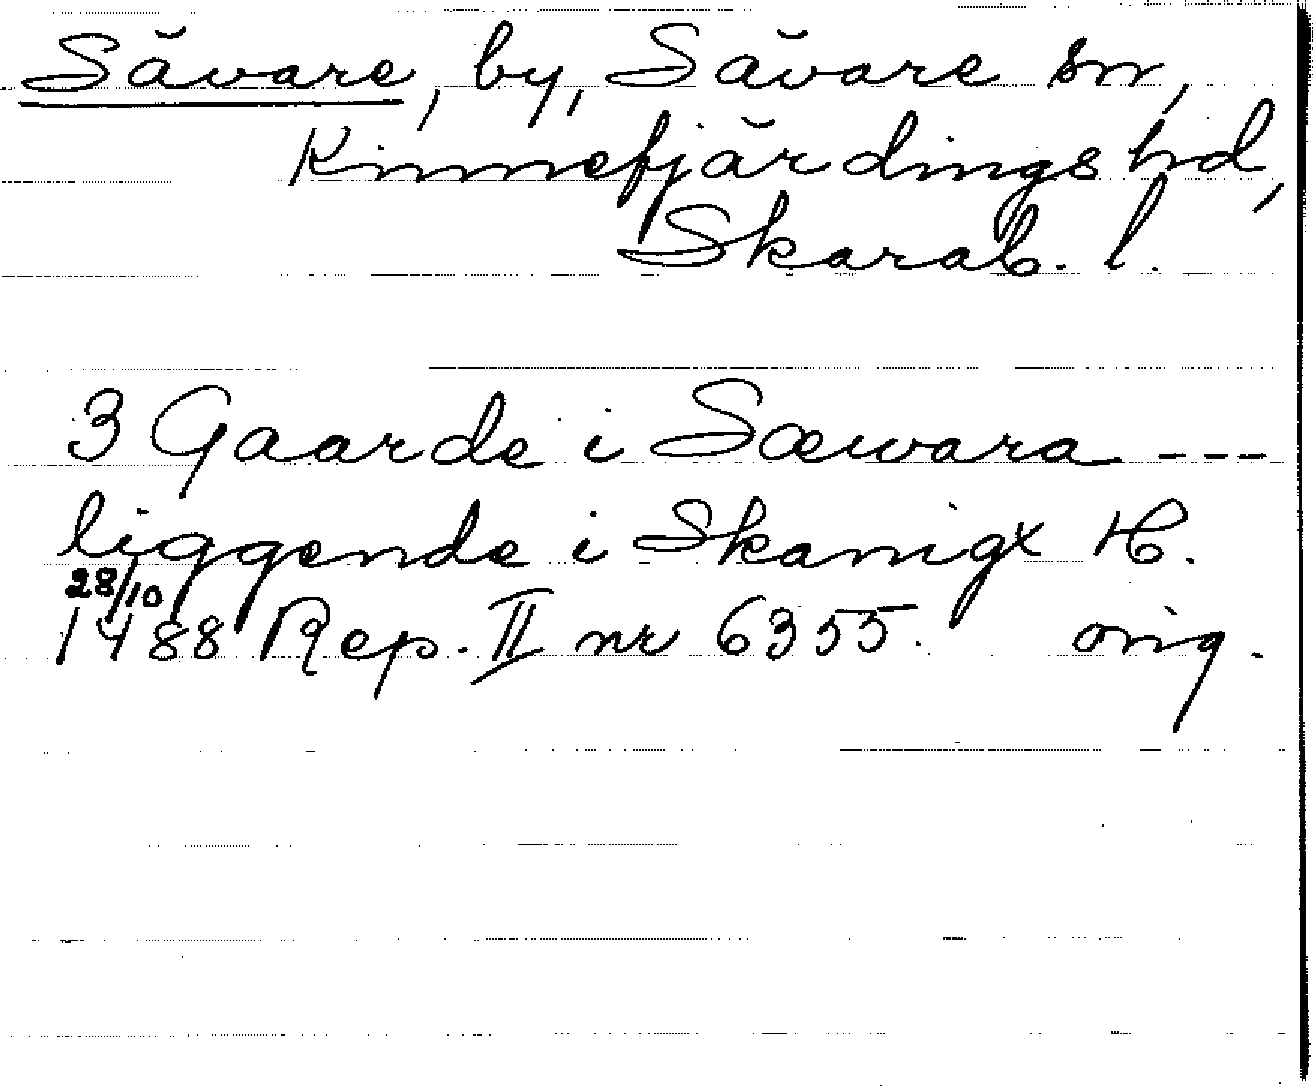 Sävare, by, Sävare sn,
Kinnefjärdings hd,
Skarab. l.
3 Gaarde i Sæwara ---
liggende i Skanigx H.
28/10
1488 Rep. II nr 6355. orig.